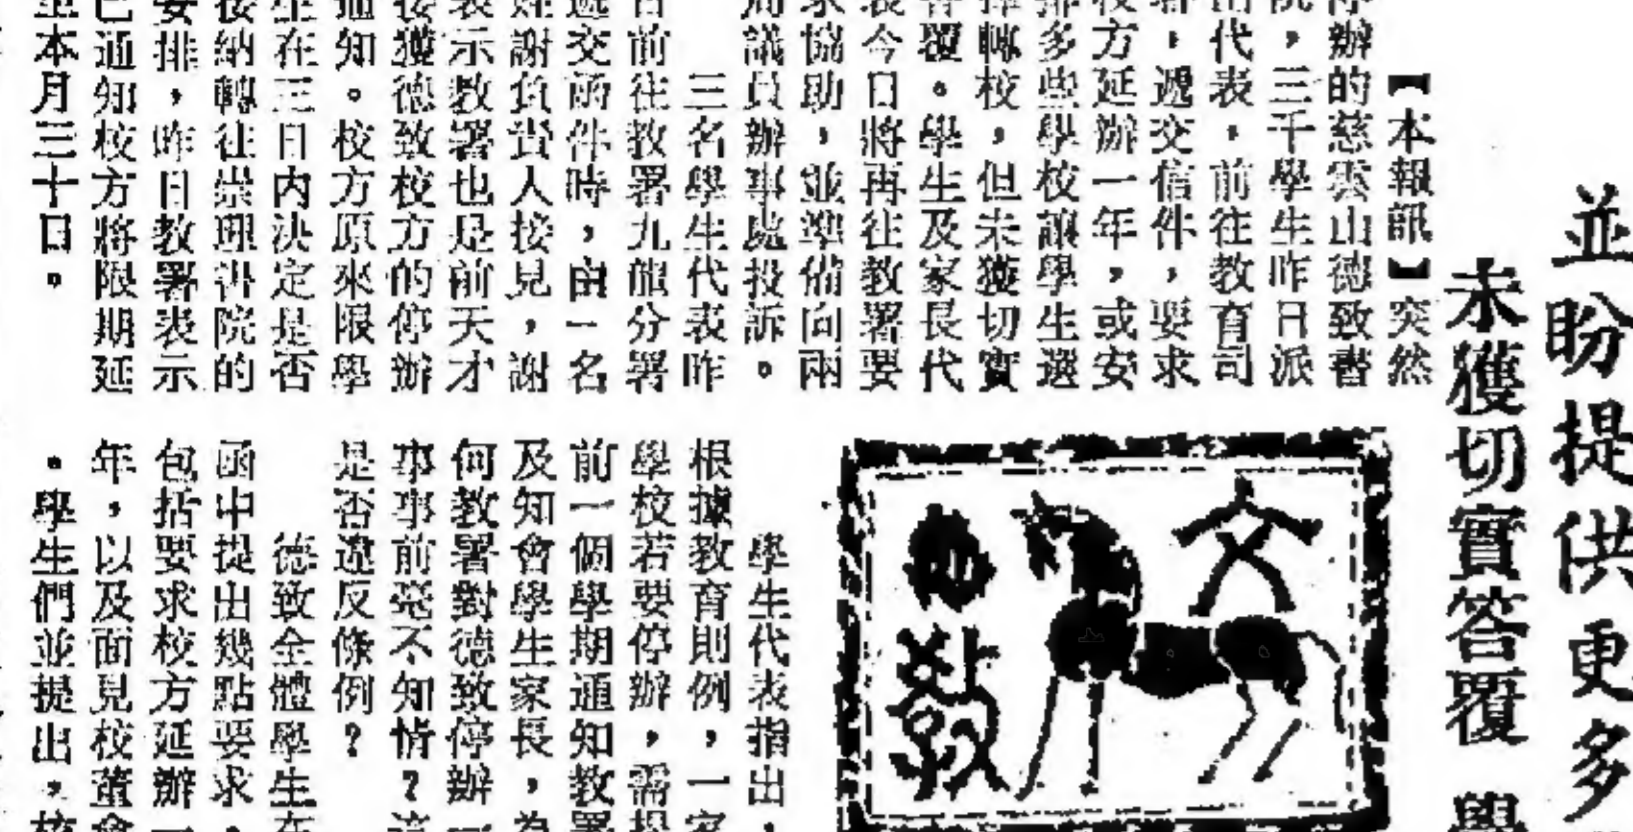 並盼提供更多
未獲切實答覆 學
【本報訊】突然
停辦的慈雲山德致書
院，三千學生昨日派
出代表，前往教育司
署，遞交信件，要求
校方延辦一年，或安
排多些學校讓學生選
擇轉校，但未獲切實
答覆。學生及家長代
表今日將再往教署要
求協助，並準備向兩
局議員辦事處投訴。
三名學生代表昨
日前往教署九龍分署
遞交函件時，由一名
姓謝負責人接見，謝
表示教署也是前天才
接獲德致校方的停辦
通知。校方原來限學
生在三日內決定是否
接納轉往崇理書院的
安排，昨日教署表示
已通知校方將限期延
至本月三十日。
文
教
學生代表指出，
根據教育則例，一家
學校若要停辦，需提
前一個學期通知教署
及知會學生家長，為
何教署對德致停辦一
事事前毫不知情？這
是否違反條例？
德致全體學生在
函中提出幾點要求，
包括要求校方延辦一
年，以及面見校董會
。學生們並提出，校